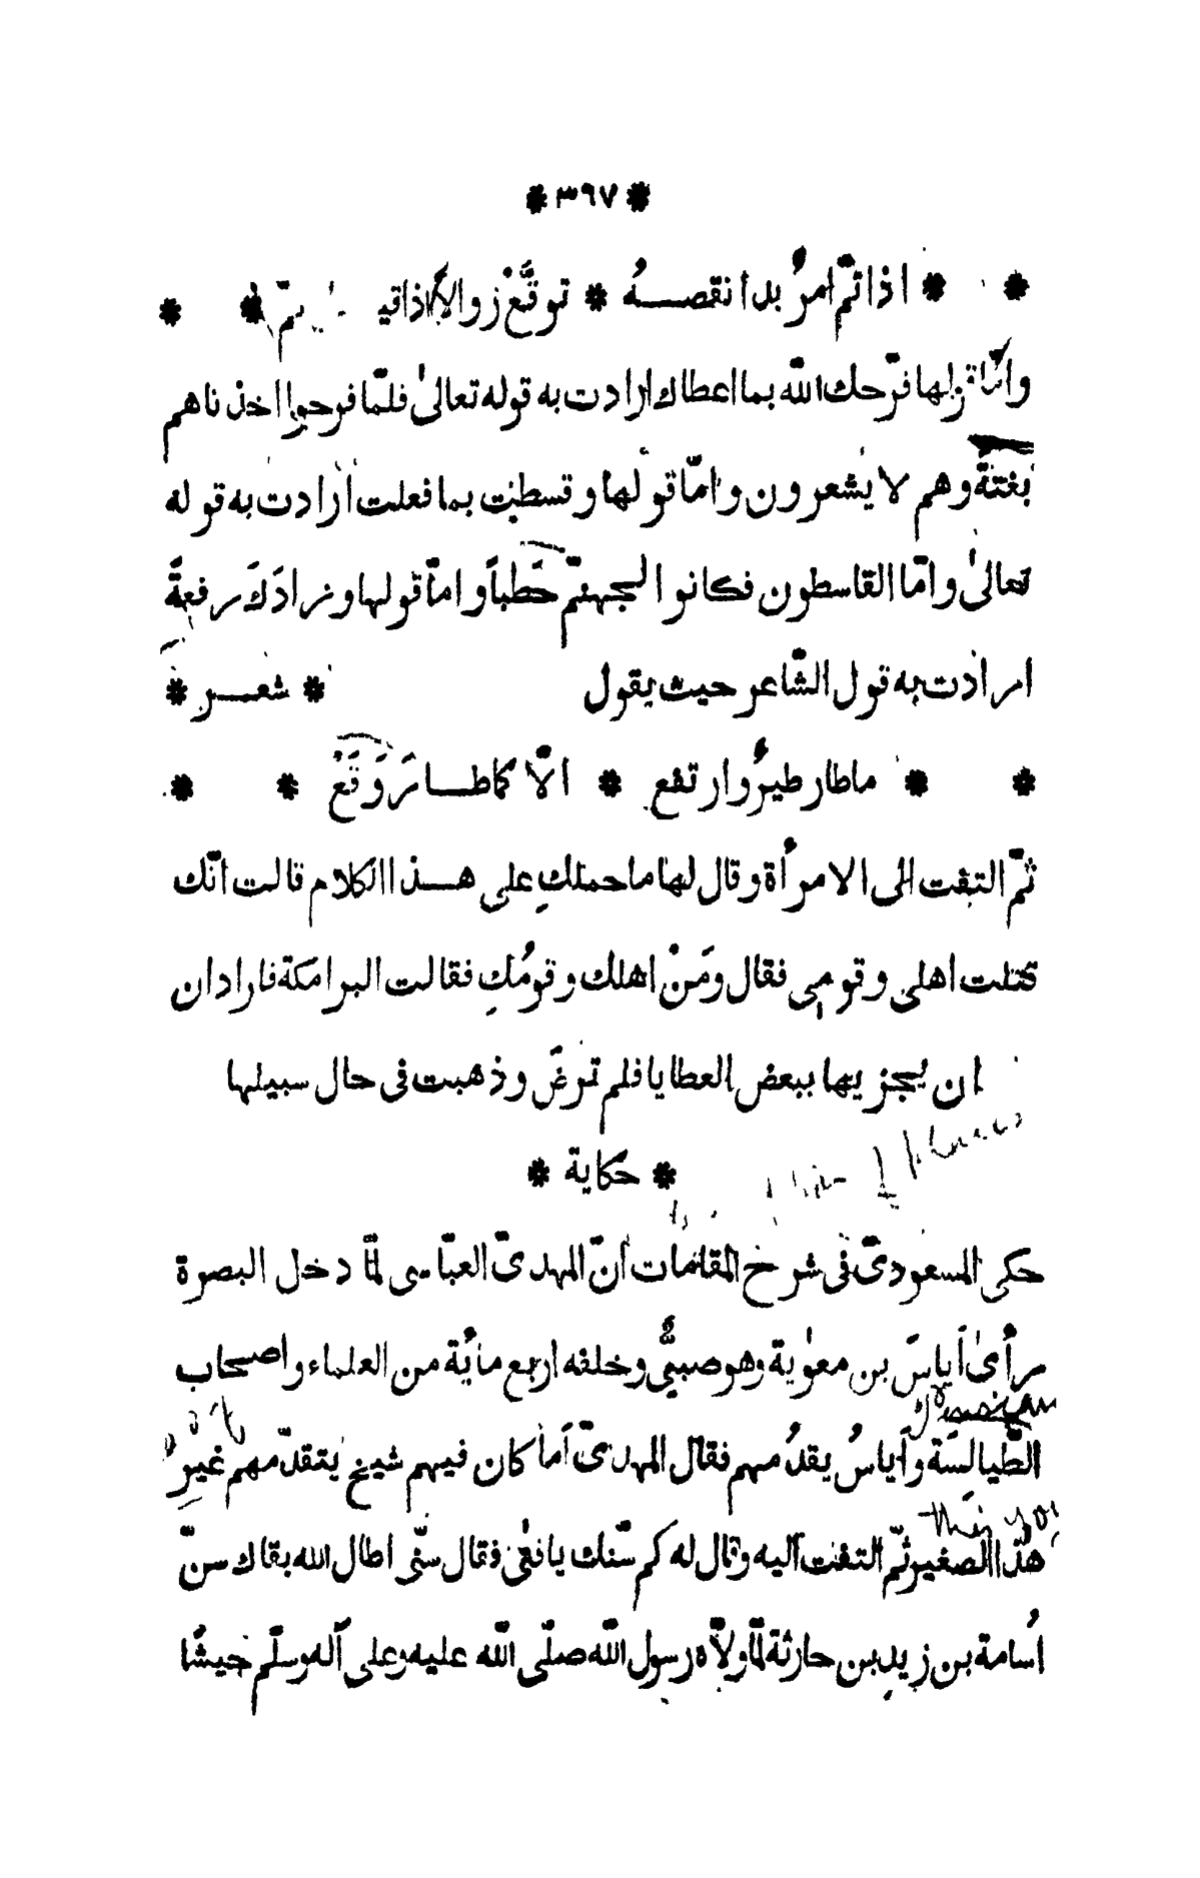 * ٣٩٧ *
* * اذا تمّ امرٌ بدا نقصـــهُ * توقّعْ زوالاً اذا قيل تمّ * *
وامّا قولها فرّحك اللّه بما اعطاك ارادت به قوله تعالىٰ فلمّا فرحوا اخذناهم
بغتةً وهم لا يشعرون وامّا قولها وقسطت بما فعلت ارادت به قوله
تعالىٰ وامّا القاسطون فكانوا لجهنّم حَطباً وامّا قولها وزادَكَ رفعةً
ارادت به قول الشّاعر حيث يقول * شعـــر *
* * ما طار طيرٌ وارتفع * الّا كما طـــارَ وَقَعْ * *
ثمّ التفت الى الامرأة وقال لها ما حملكِ على هـــذا الكلام قالت انّك
قتلت اهلى وقومى فقال ومَنْ اهلك وقومُكِ فقالت البرامكة فاراد ان
ان يجزيها ببعض العطايا فلم ترضَ وذهبت فى حال سبيلها
* حكاية *
حكى المسعودىّ فى شرح المقامات انّ المهدىّ العبّاسى لمّا دخل البصرة
رأىٰ أياسَ بن معٰوية وهو صبىٌّ وخلفه اربع مائة من العلماء واصحاب
الطّيالسة وأياسُ يقدُمهم فقال المهدىّ أما كان فيهم شيخ يتقدّمهم غيرُ
than you
هذا الصغير ثمّ التفت اليه وقال له كم سنّك يا فتى فقال سنّى اطال الله بقاك سنّ
اُسامة بن زيدِ بن حارثة لمّا ولّاه رسول اللّه صلّى اللّه عليه وعلى آله وسلّم جيشًا